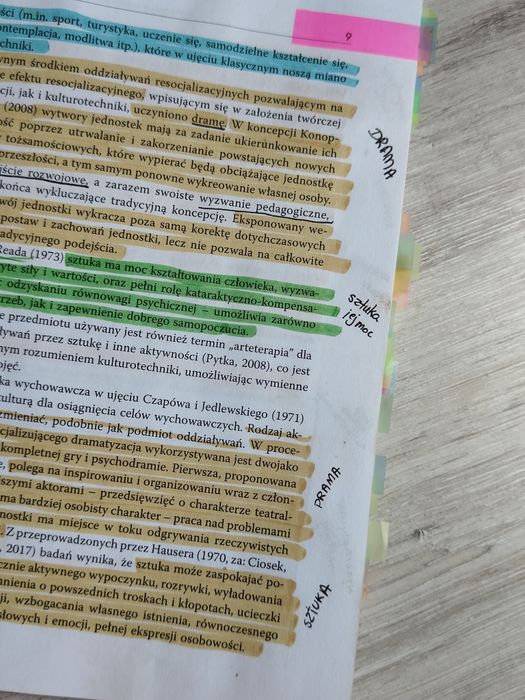 9
ści (m.in. sport, turystyka, uczenie się, samodzielne kształcenie się,
ontemplacja, modlitwa itp.), które w ujęciu klasycznym noszą miano
chniki.
wnym środkiem oddziaływań resocjalizacyjnych pozwalającym na
e efektu resocjalizacyjnego, wpisującym się w założenia twórczej
cji, jak i kulturotechniki, uczyniono dramę. W koncepcji Konop-
(2008) wytwory jednostek mają za zadanie ukierunkowanie ich
ość poprzez utrwalanie i zakorzenianie powstających nowych
tożsamościowych, które wypierać będą obciążające jednostkę
przeszłości, a tym samym ponowne wykreowanie własnej osoby.
jście rozwojowe, a zarazem swoiste wyzwanie pedagogiczne,
końca wykluczające tradycyjną koncepcję. Eksponowany we-
wój jednostki wykracza poza samą korektę dotychczasowych
postaw i zachowań jednostki, lecz nie pozwala na całkowite
adycyjnego podejścia.
Reada (1973) sztuka ma moc kształtowania człowieka, wyzwa-
yte siły i wartości, oraz pełni rolę kataraktyczno-kompensa-
c odzyskaniu równowagi psychicznej – umożliwia zarówno
trzeb, jak i zapewnienie dobrego samopoczucia.
e przedmiotu używany jest również termin „arteterapia” dla
ływań przez sztukę i inne aktywności (Pytka, 2008), co jest
nym rozumieniem kulturotechniki, umożliwiając wymienne
ojęć.
ka wychowawcza w ujęciu Czapówa i Jedlewskiego (1971)
kulturą dla osiągnięcia celów wychowawczych. Rodzaj ak-
zmieniać, podobnie jak podmiot oddziaływań. W proce-
cjalizującego dramatyzacja wykorzystywana jest dwojako
kompletnej gry i psychodramie. Pierwsza, proponowana
e, polega na inspirowaniu i organizowaniu wraz z człon-
szymi aktorami – przedsięwzięć o charakterze teatral-
ma bardziej osobisty charakter – praca nad problemami
nostki ma miejsce w toku odgrywania rzeczywistych
. Z przeprowadzonych przez Hausera (1970, za: Ciosek,
, 2017) badań wynika, że sztuka może zaspokajać po-
cznie aktywnego wypoczynku, rozrywki, wyładowania
mnienia o powszednich troskach i kłopotach, ucieczki
ji, wzbogacania własnego istnienia, równoczesnego
słowych i emocji, pełnej ekspresji osobowości.
DRAMA
sztuka
i jej moc
DRAMA
SZTUKA